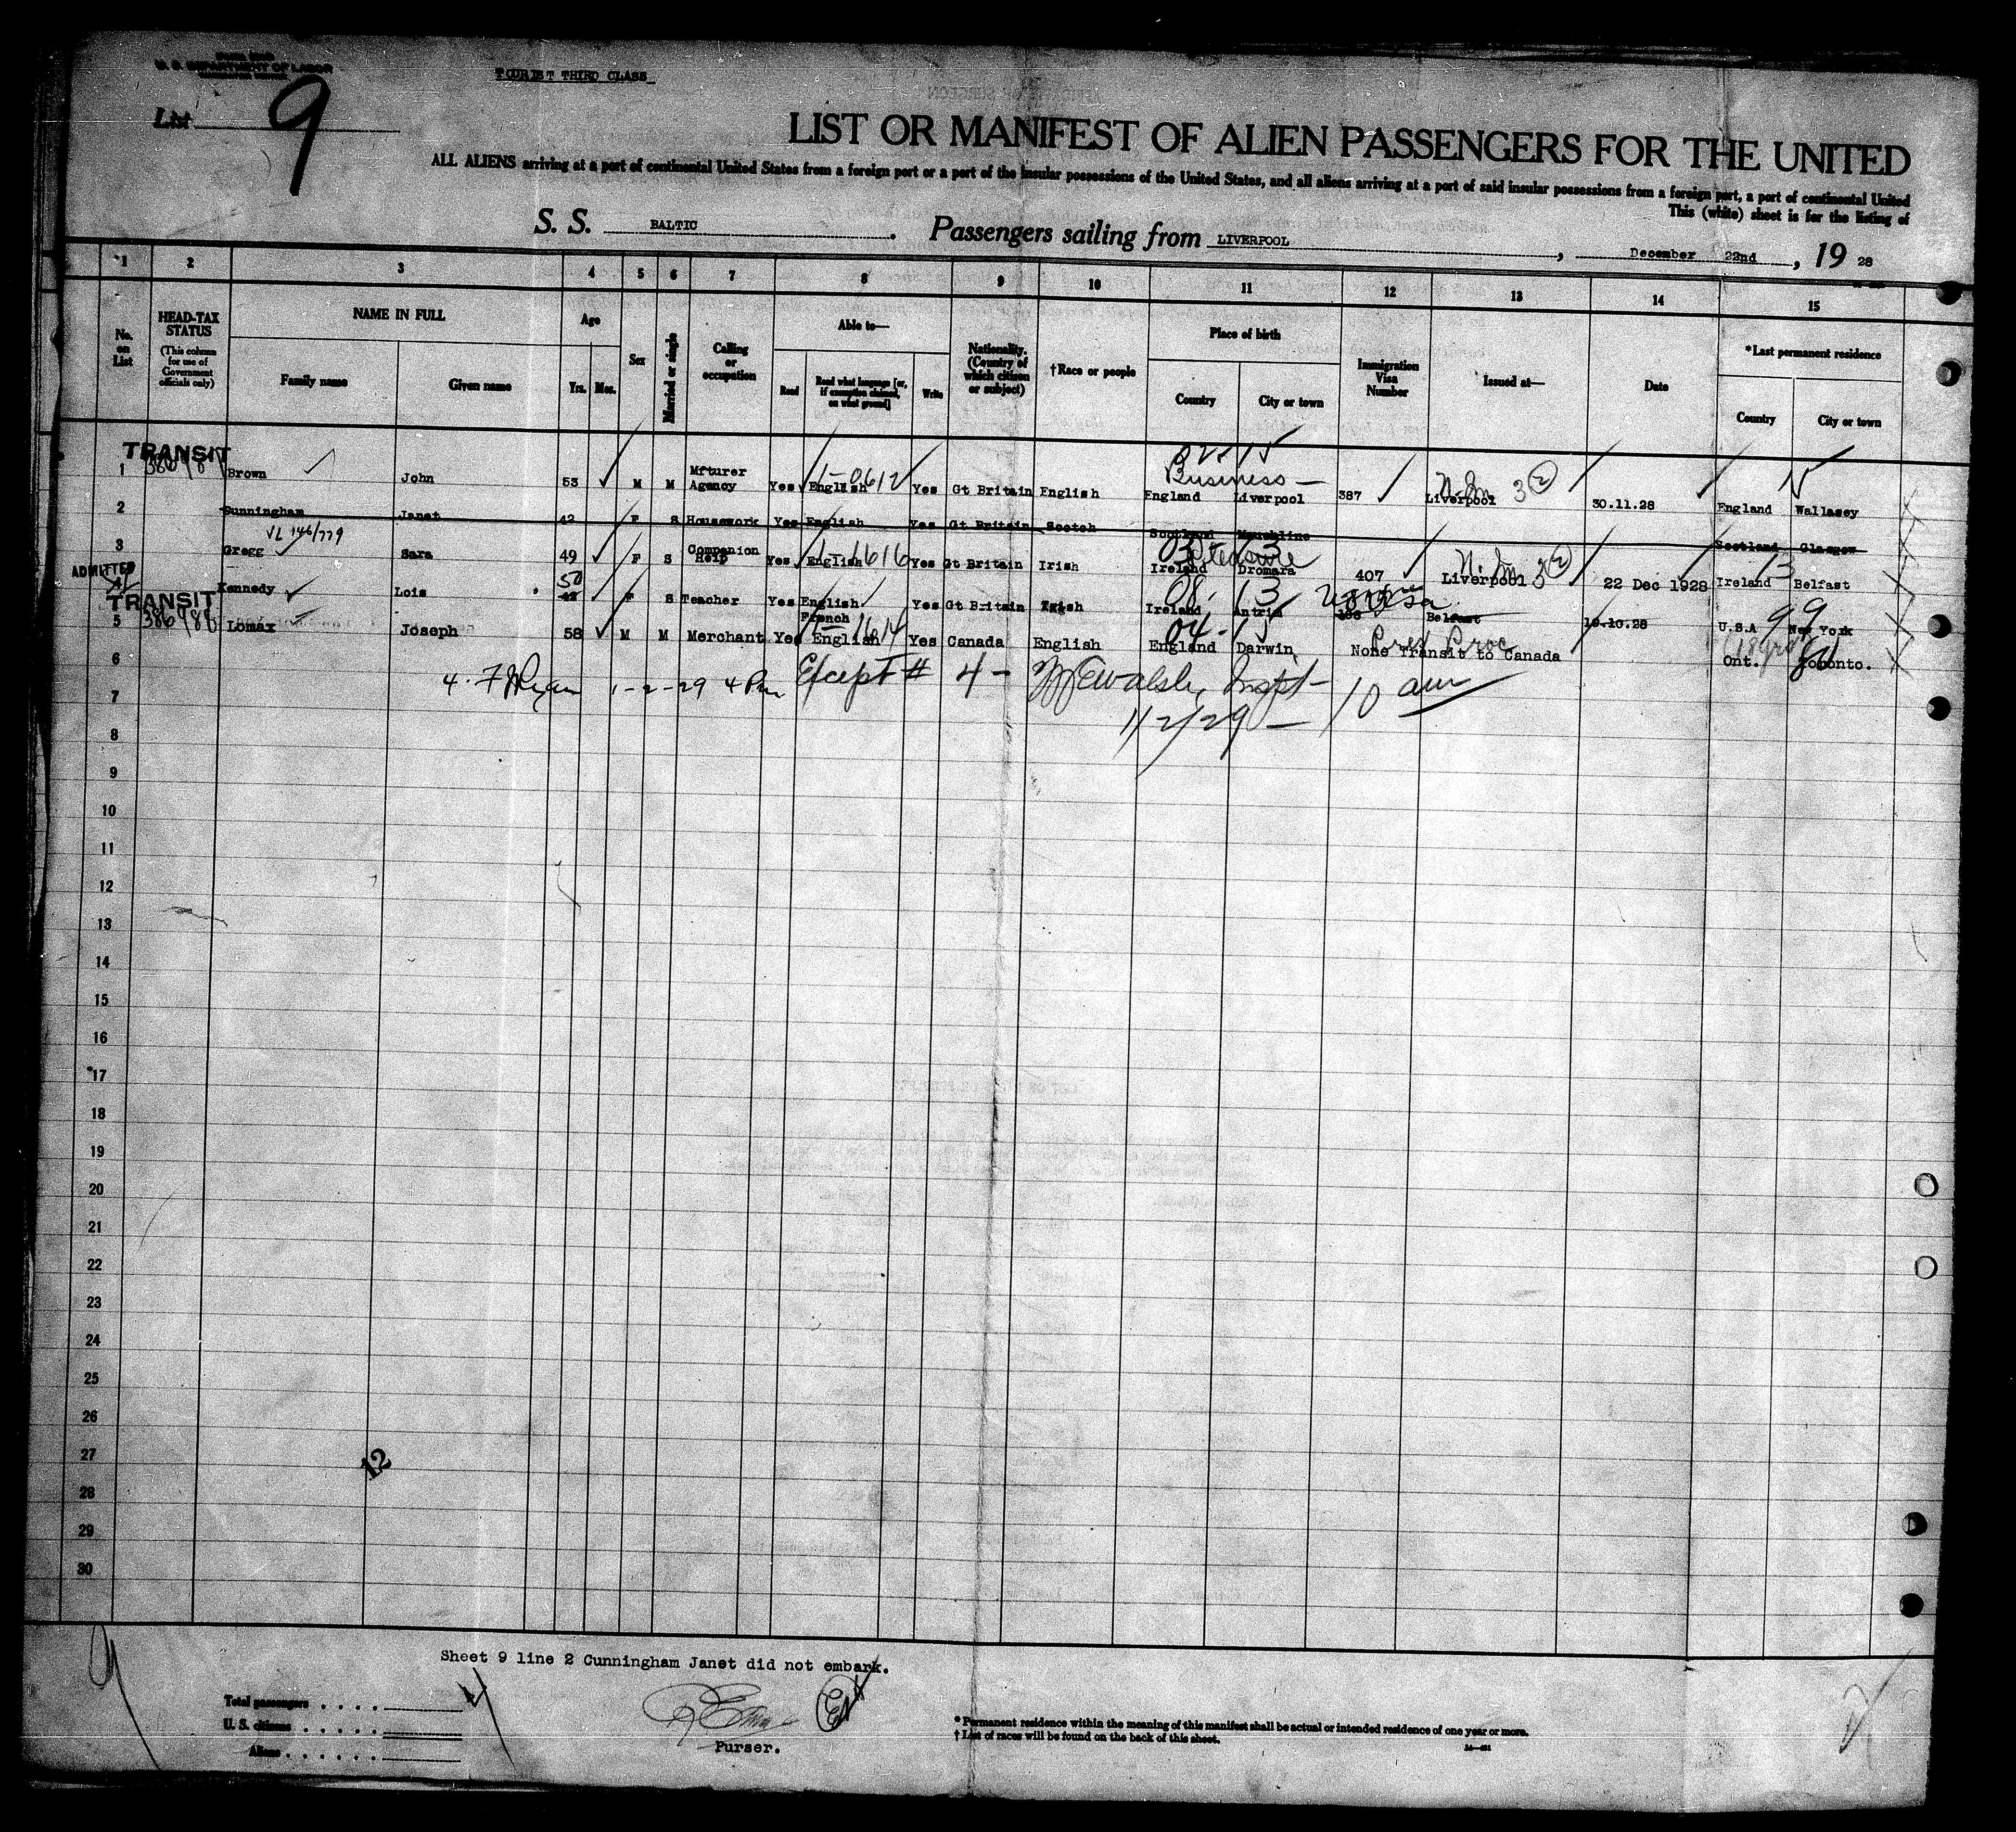 U. S. DEPARTMENT OF LABOR
TOURIST THIRD CLASS
List 9
LIST OR MANIFEST OF ALIEN PASSENGERS FOR THE UNITED
ALL ALIENS arriving at a port of continental United States from a foreign port or a port of the insular possessions of the United States, and all aliens arriving at a port of said insular possessions from a foreign port, a port of continental United
This (white) sheet is for the listing of
S. S. BALTIC. Passengers sailing from LIVERPOOL, December 22nd, 19 28
1 2 3 4 5 6 7 8 9 10 11 12 13 14 15
No. on List
HEAD-TAX STATUS (This column for use of Government officials only)
NAME IN FULL
Family name
Given name
Age
Yrs. Mos.
Sex
Married or single
Calling or occupation
Able to—
Read
Read what language [or, if exemption claimed, on what ground]
Write
Nationality. (Country of which citizen or subject)
†Race or people
Place of birth
Country
City or town
Immigration Visa Number
Issued at—
Date
*Last permanent residence
Country
City or town
TRANSIT
Business
1 Brown John 53 M M Mfturer Agency Yes English Yes Gt Britain English England Liverpool 387 Liverpool 30.11.28 England Wallasey
2 Cunningham Janet 42 F S Housework Yes English Yes Gt Britain Scotch Scotland Mauchline Scotland Glasgow
VL 146/779
Pleasure
3 Gregg Sara 49 F S Companion Help Yes English Yes Gt Britain Irish Ireland Dromara 407 Liverpool 22 Dec 1928 Ireland Belfast
ADMITTED
50
4 Kennedy Lois F S Teacher Yes English Yes Gt Britain Irish Ireland Antrim Belfast 10.10.28 U.S.A New York
TRANSIT
5 Lomax Joseph 58 M M Merchant Yes French English Yes Canada English England Darwin None Transit to Canada Ont. Toronto.
6
4. 1-2-29 4 Pm Except # 4 - Walsh, Inspt - 10 am
7
1/2/29 —
8
9
10
11
12
13
14
15
16
17
18
19
20
21
22
23
24
25
26
27
12
28
29
30
9
Sheet 9 line 2 Cunningham Janet did not embark.
Total passengers
U. S. citizens
Aliens
Purser.
* Permanent residence within the meaning of this manifest shall be actual or intended residence of one year or more.
† List of races will be found on the back of this sheet.